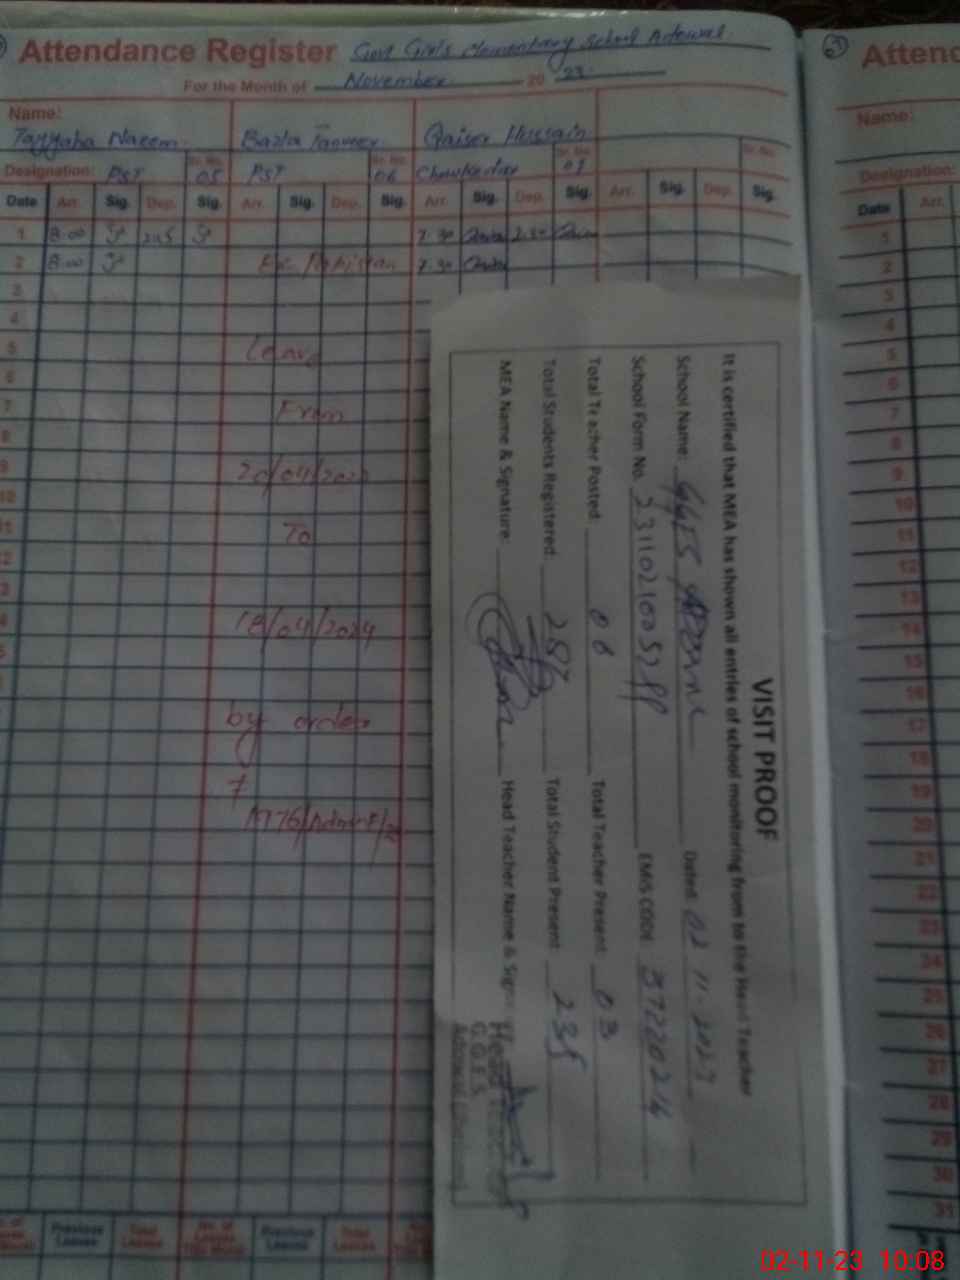 Attendance Register Govt Girls Elementary School
For the Month of November 20 23
Name:
Tayyaba Naeem Bazla Tanveer Qaiser Hussain
Designation: PST Sr. No. 05 PST Sr. No. 06 Chowkedar Sr. No. 07 Sr. No.
Date Arr. Sig. Dep. Sig. Arr. Sig. Dep. Sig. Arr. Sig. Dep. Sig. Arr. Sig. Dep. Sig.
1 8:00 2:45 7:30 2:30
2 8:00 Ex-Pakistan 7:30
3
4
5 Leave
6
7 From
8
9 20/04/202
10
11 To
12
13
14 18/04/2024
by order
Previous Leaves Total Leaves No. of Leaves This Month Previous Leaves Total Leaves
VISIT PROOF
It is certified that MEA has shown all entries of school monitoring from to the Head Teacher
School Name: GGES Dated: 02-11-2023
School Form No. EMIS CODE 37220214
Total Teacher Posted: 06 Total Teacher Present: 03
Total Students Registered: 287 Total Student Present: 235
MEA Name & Signature: Head Teacher Name &
Head
G.G.E.S
Atten
Name:
Designation:
Date Arr.
1
2
3
4
5
6
7
8
9
10
11
12
13
14
15
16
17
18
19
20
21
22
23
24
25
26
27
28
29
30
31
02-11-23 10:08